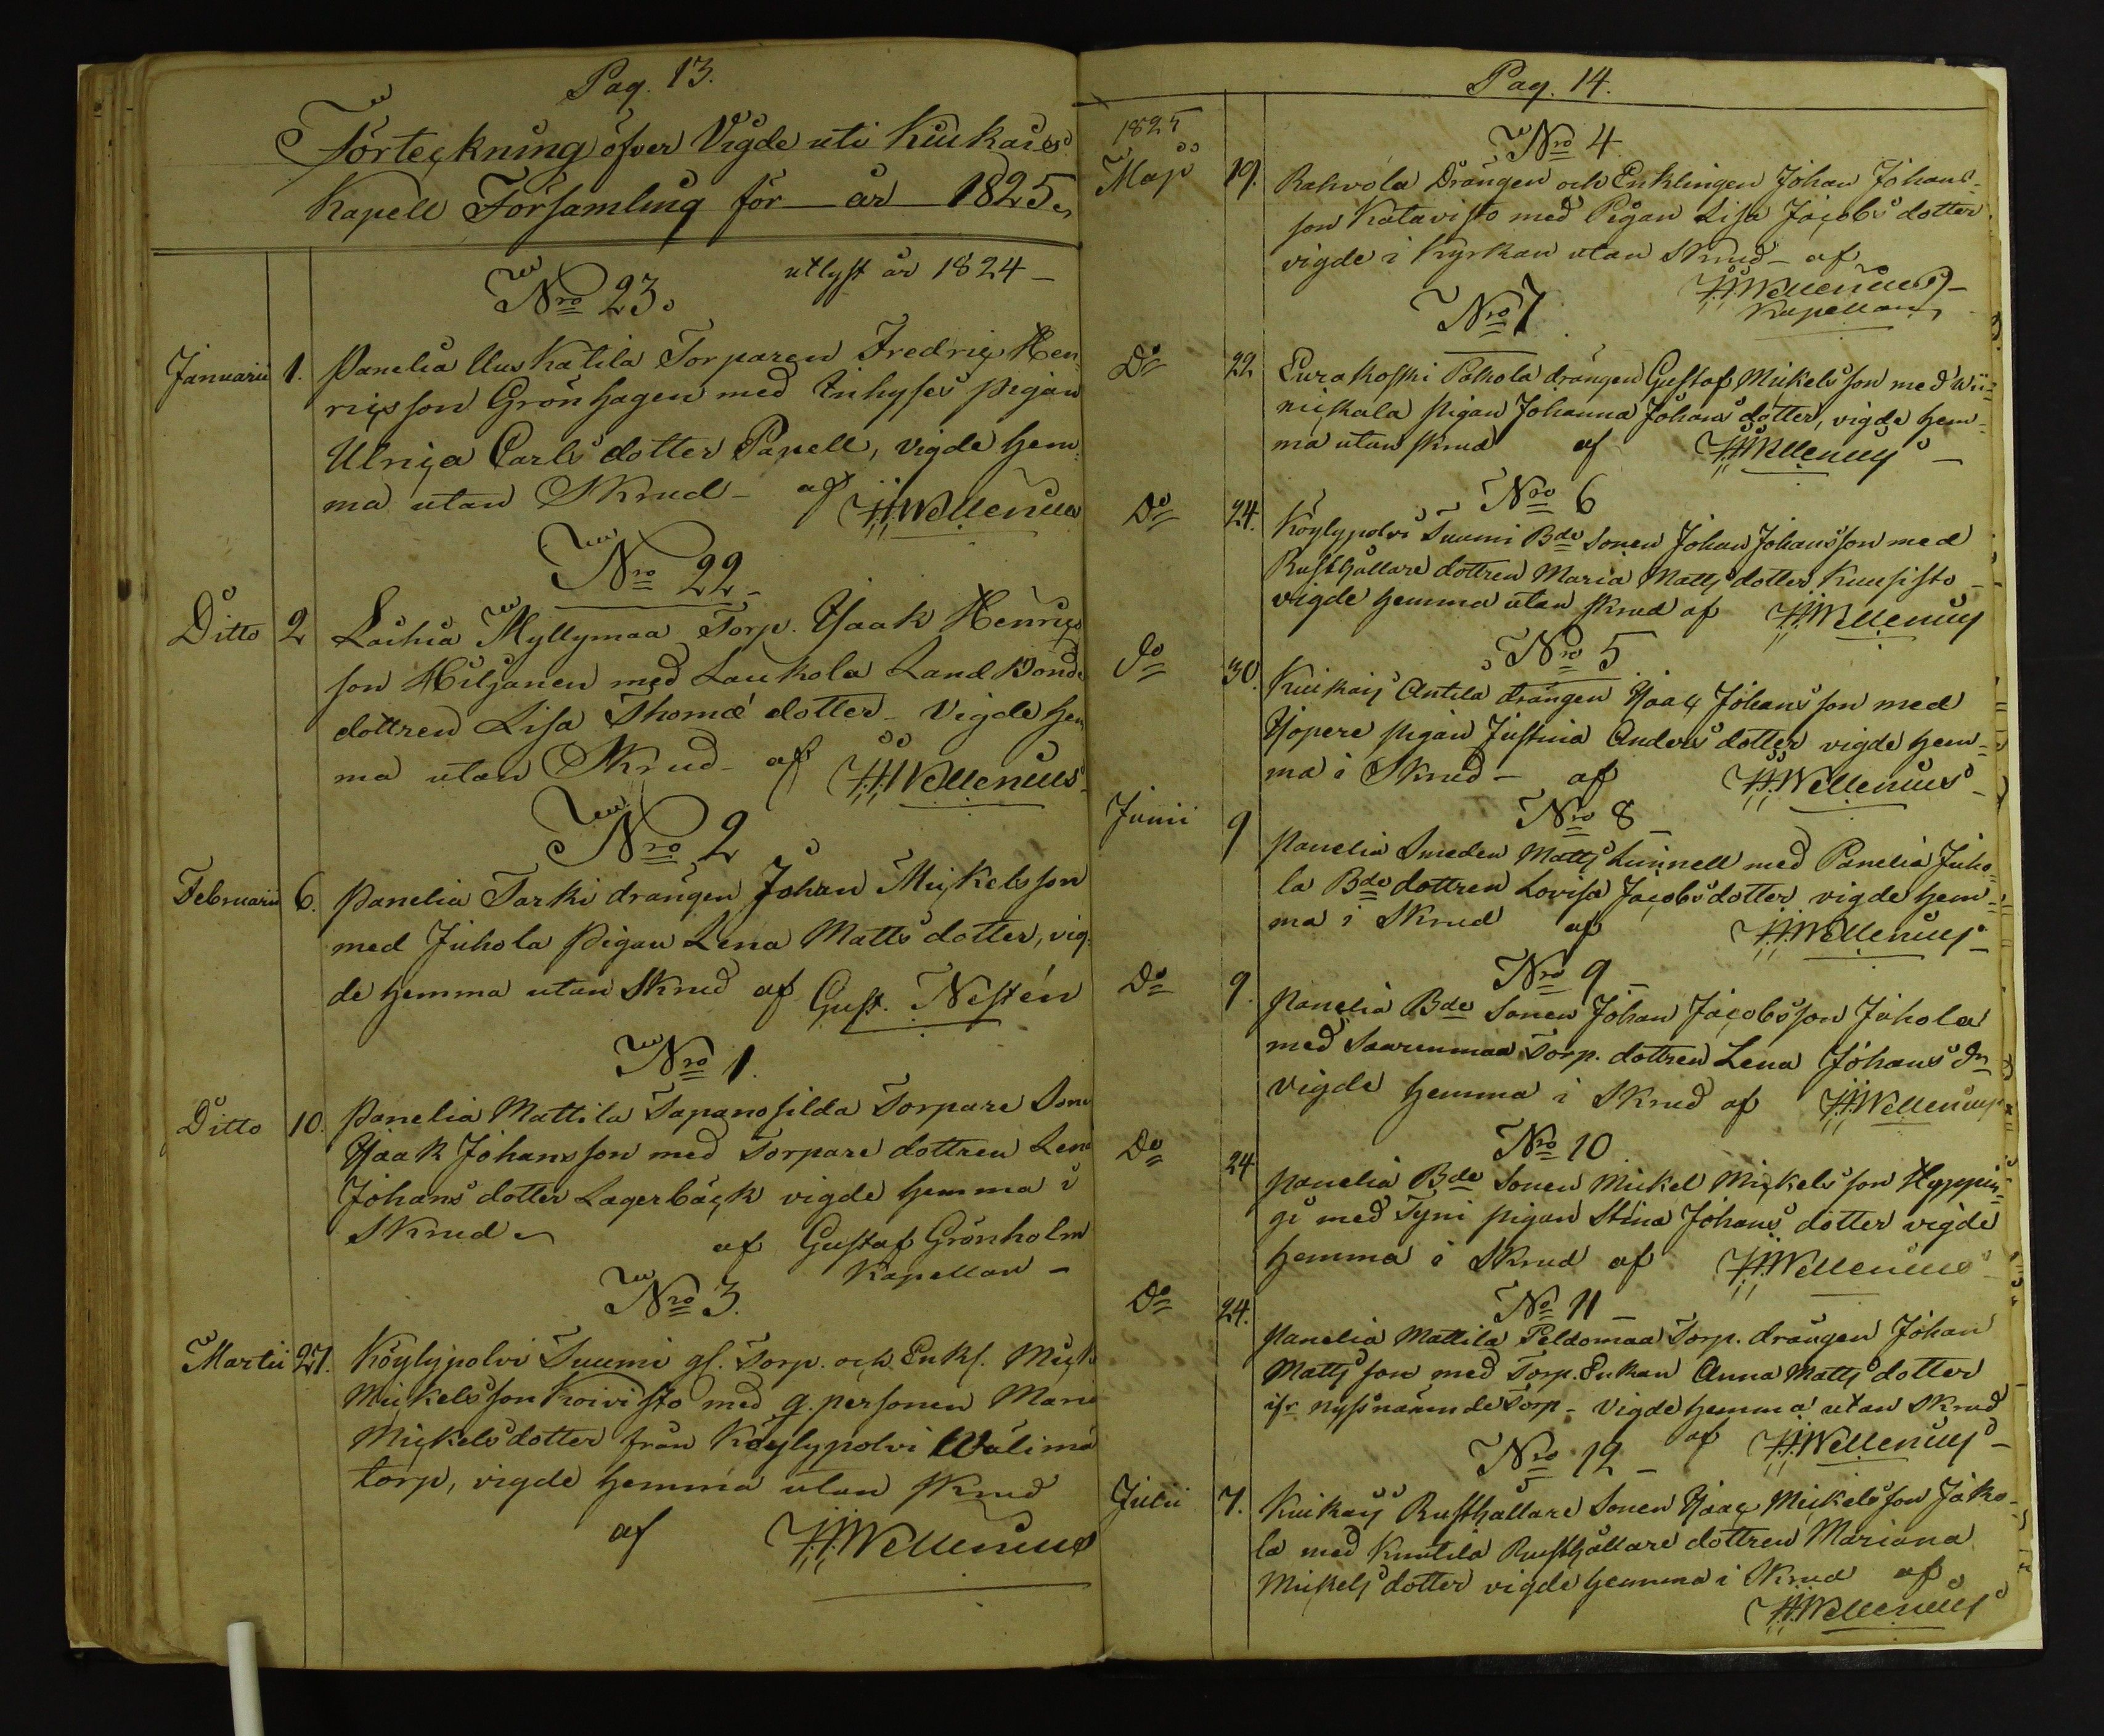 Pag. 13.
Förteckning öfver Vigde uti Kiukais
Kapell Församling för år 1825.
utlyst år 1824 -
Nro 23.
Januarii 1. Panelia Uuskatila Torparen Fredric Hen
ricsson Grönhagen med Inhyses pigan
Ulrica Carls dotter Papell, vigde hem
ma utan Skrud - af HWellenius
Nro 22 -
Ditto 2 Laihia Myllymaa Torp. Isaak Henrics
son Hiljanen med Laukola Land Bonde
dottren Lisa Thomæ dotter - Vigde hem
ma utan Skrud - af HWellenius
Nro 2
Februarii 6. Panelia Tarki drängen Johan Mickelsson
med Juhola Pigan Lena Matts dotter, vig-
de hemma utan Skrud af Gust. Nestén
Nro 1.
Ditto 10. Panelia Mattila Tapanosilda Torpare Son
Isaak Johansson med Torpare dottren Lena
Johans dotter Lagerbäck vigde hemma i
Skrud af Gustaf Grönholm
Kapellan -
Nro 3.
Martii 27. Köylypolvi Suumi gl. Torp. och Enkl. Mick
Mickelsson Koivisto med q. personen Mari
Mickelsdotter från Köylypolvi Wälima
torp, vigde hemma utan skrud
af HWellenius
Pag. 14.
1825
Nro 4
Maji 19. Rahvola Drängen och Enklingen Johan Johans-
son Katavisto med Pigan Lisa Jacobs dotter
vigde i Kyrkan utan Skrud - af
HWellenius
Kapellan
Nro 7
Do 22 Eurakoski Pakola drängen Gustaf Mickelsson med Wii-
nickala pigan Johanna Johans dotter, vigde hem-
ma utan skrud af HWellenius -
Nro 6
Do 24. Köylypolvi Suumi Bde Sonen Johan Johansson med
Rusthållare dottren Maria Matts dotter Kuusisto -
vigde hemma utan skrud af HWellenius
Nro 5
Do 30. Kiukais Antila drängen Isaac Johansson med
Isopere pigan Justina Anders dotter vigde hem-
ma i Skrud - af HWellenius -
Nro 8 -
Junii 9 Panelia Smeden Matts Linnell med Panelia Juho-
la Bde dottren Lovisa Jacobs dotter vigde hem-
ma i Skrud af HWellenius -
Nro 9 -
Do 9. Panelia Bde Sonen Johan Jacobsson Juhola
med Saarenmaa Torp. dottren Lena Johans dr
vigde hemma i Skrud af HWellenius
Nro 10
Do 24 Panelia Bde Sonen Mickel Mickelsson Hyppin-
gi med Tyni pigan Stina Johans dotter vigde
hemma i Skrud af HWellenius
No 11 -
Do 24. Panelia Mattila Peldomaa Torp. drängen Johan
Mattsson med Torp. Enkan Anna Matts dotter
ifr nyssnämnde Torp - vigde hemma utan Skrud
af HWellenius -
Nro 12 -
Julii 7. Kiukais Rusthållare Sonen Isaac Mickelsson Jako-
la med Knutila Rusthållare dottren Mariana
Mickels dotter vigde hemma i Skrud af
HWellenius